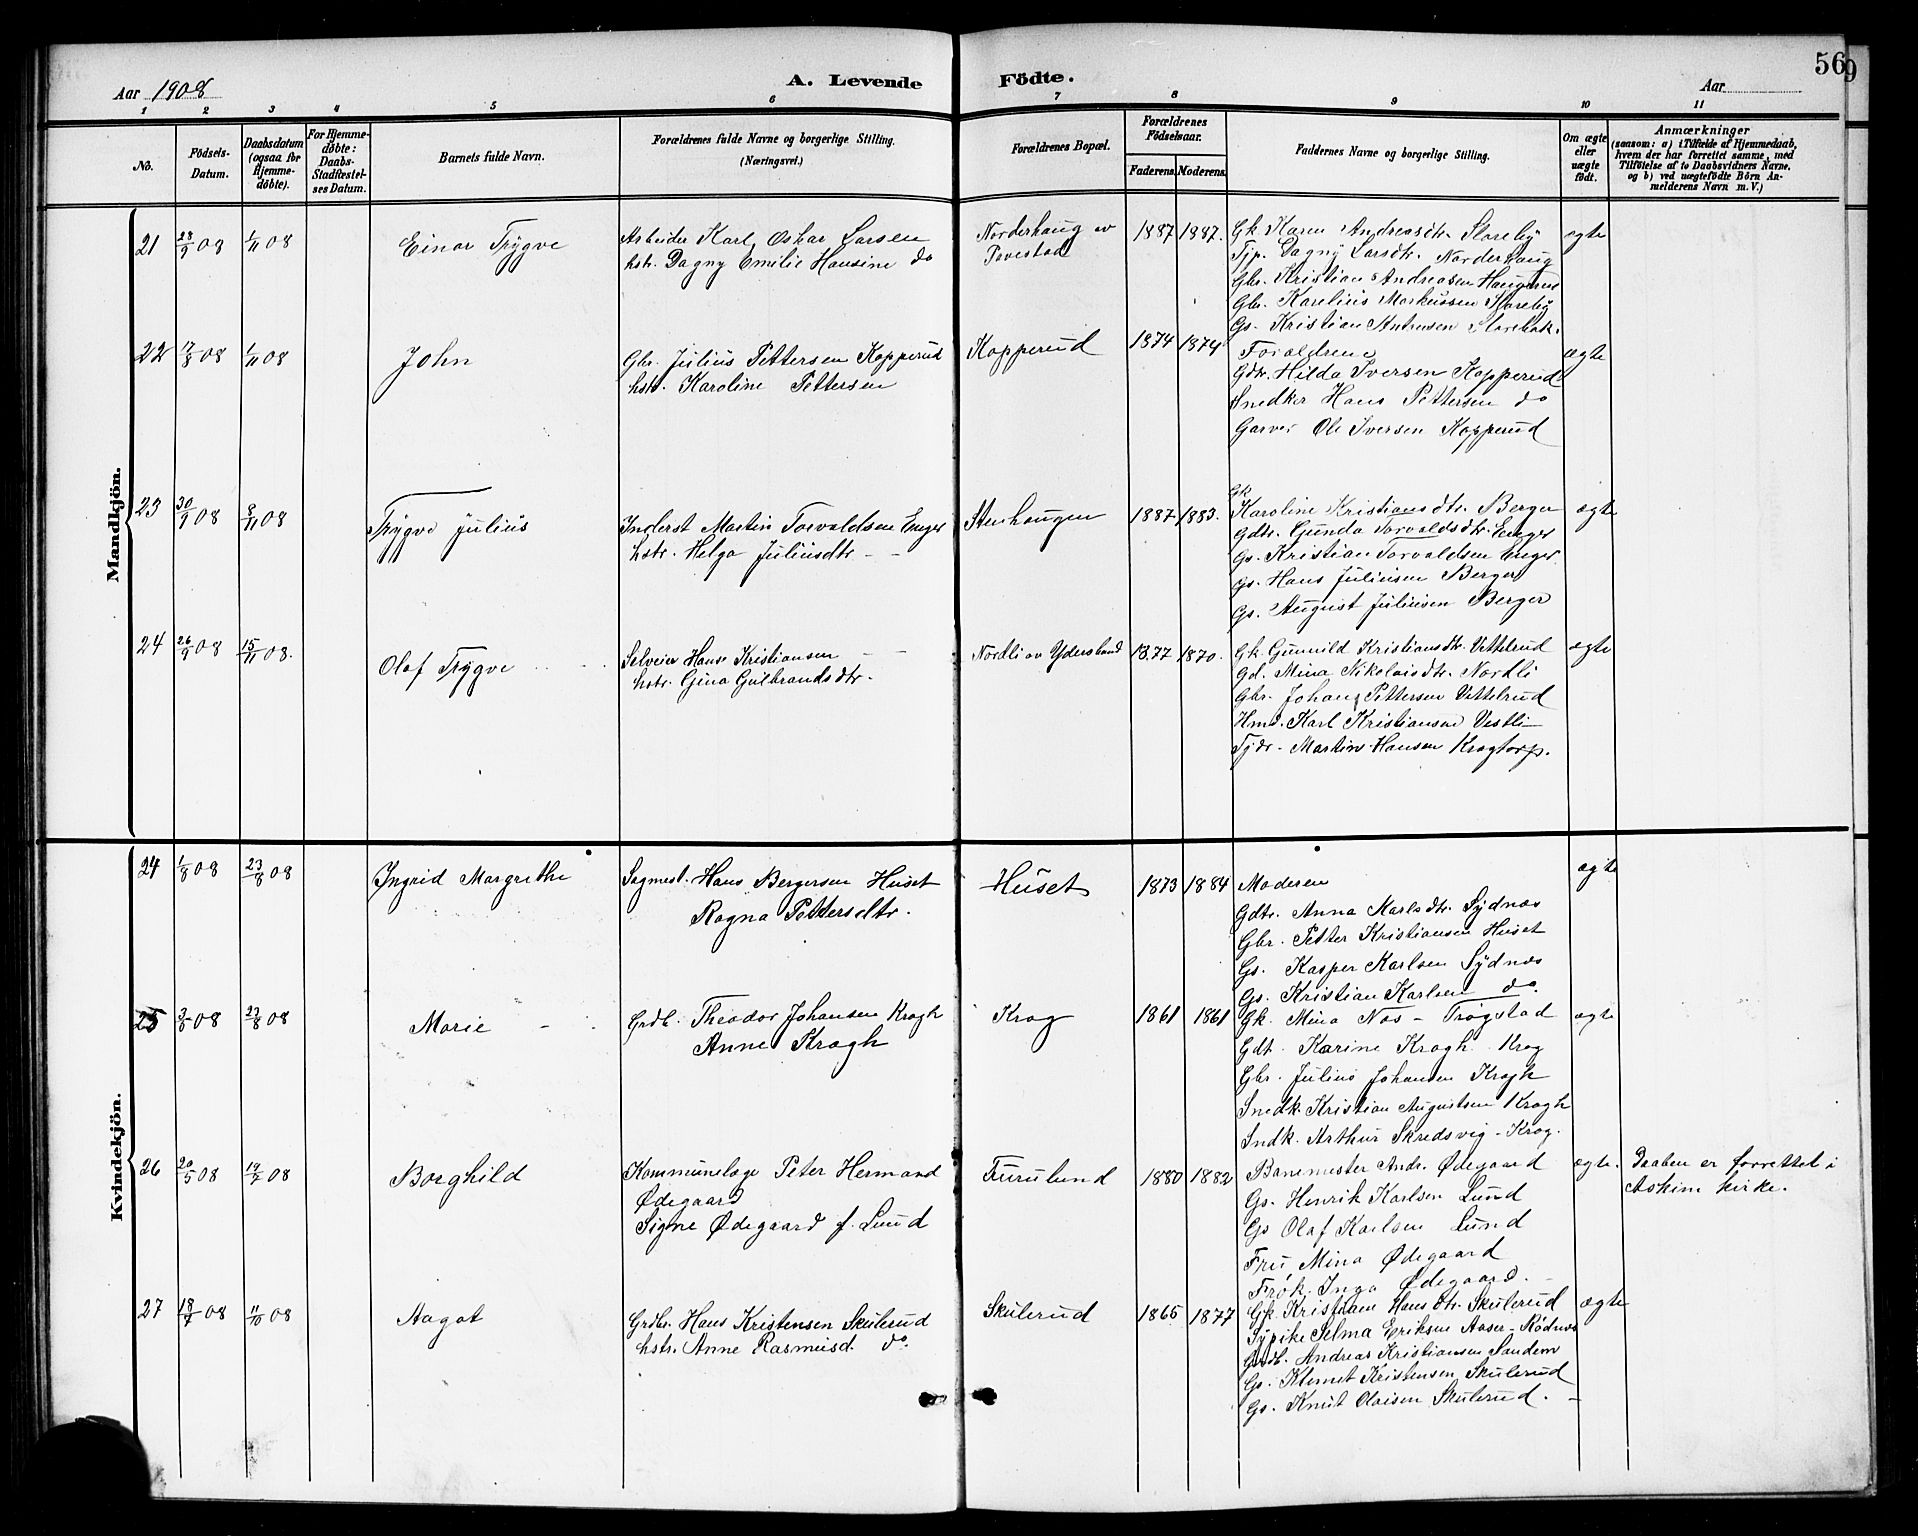 56
9
Aar 1908
A. Levende Födte.
Aar
1 2 3 4 5 6 7 8 9 10 11
No.
Födsels-Datum.
Daabsdatum (ogsaa for Hjemmedöbte).
For Hjemmedöbte: Daabs-Stadfæstelses Datum.
Barnets fulde Navn.
Forældrenes fulde Navne og borgerlige Stilling. (Næringsvei.)
Forældrenes Bopæl.
Forældrenes Födselsaar.
Faderens. Moderens.
Faddernes Navne og borgerlige Stilling.
Om ægte eller uægte födt.
Anmærkninger (saasom: a) i Tilfælde af Hjemmedaab, hvem der har forrettet samme, med Tilföielse af to Daabsvidners Navne, og b) ved uægtefödte Börn Anmelderens Navn m. V.)
Mandkjön.
21 28/9 08 1/11 08 Einar Trygve
Arbeider Karl Oskar Larsen
hstr. Dagny Emilie Hansine do
Norderhaug av
Tovestad
1887 1887.
Gk Karen Andreasdtr. Sloreby
Tjp. Dagny Larsdtr. Norderhaug
Gbr. Kristian Andreasen Haugerne
Gbr. Karelius Markussen Sloreby
Gs. Kristian Antonsen Slorebak.
ægte
22 17/8 08 1/11 08 John
Gbr. Julius Pettersen Kopperud
hstr. Karoline Pettersen
Kopperud
1874 1874
Forældrene
Gdtr. Hilda Iversen Kopperud
Snedker Hans Pettersen do
Garver Ole Iversen Kopperud
ægte
23 30/9 08 8/11 08 Trygve Julius
Inderst Martin Torvaldsen Enger
hstr. Helga Juliusdtr. – –
Stenhaugen
1887 1883.
Gk
Karoline Kristiansdtr. Berger
Gdtr. Gunda Torvaldsdtr. Enger
Gs. Kristian Torvaldsen Enger.
Gs. Hans Juliusen Berger
Gs. August Juliusen Berger
ægte
24 26/9 08 15/11 08. Olaf Trygve
Selveier Hans Kristiansen
hstr. Gina Gulbrandsdtr.
Nordli av Ydersland
1877 1870.
Gk. Gunnild Kristiansdtr. Vittelrud
Gd. Mina Nikolaisdtr. Nordli
Gbr. Johan Pettersen Vittelrud
Hmd. Karl Kristiansen Vestli
Tjdr. Martin Hansen Krogtorp.
ægte
Kvindekjön.
24 1/8 08 23/8 08 Ingrid Margrethe
Sagmest. Hans Bergersen Huset
Ragna Pettersdtr.
Huset
1873 1884
Moderen
Gdtr. Anna Karlsdtr. Sydnæs
Gbr. Petter Kristiansen Huset
Gs. Kasper Karlsen Sydnæs
Gs. Kristian Karlsen do.
ægte
25 08 23/8 08 Marie
Grdb. Theodor Johansen Krogh
Anne Krogh
Krog
1861 1861
Gk. Mina Nos – Trøgstad
Gdt. Karine Krogh Krog
Gbr. Julius Johansen Krogh
Snedk. Kristian Augustsen Krogh
Sndk. Arthur Skredsvig – Krog.
ægte
26 20/5 08 19/7 08 Borghild
Kommunelæge Peter Hermand
Ødegaard
Signe Ødegaard f. Lund
Furulund
1880 1882
Banemester Andr. Ødegaard
Gs. Henrik Karlsen Lund
Gs Olaf Karlsen Lund
Fru Mina Ødegaard
Frøk. Inga Ødegaard.
ægte.
Daaben er forrettet i
Askim kirke.
27 18/7 08 11/10 08 Aagot
Grdbr. Hans Kristensen Skulerud
hstr. Anne Rasmusd. do.
Skulerud
1865 1877
Gk. Kristiane Hansdtr. Skulerud
Sypike Selma Eriksen Aaser – Rødnæs
Grdb. Andreas Kristiansen Sandem
Gs. Klemet Kristensen Skulerud
Gs. Knut Olaisen Skulerud.
ægte